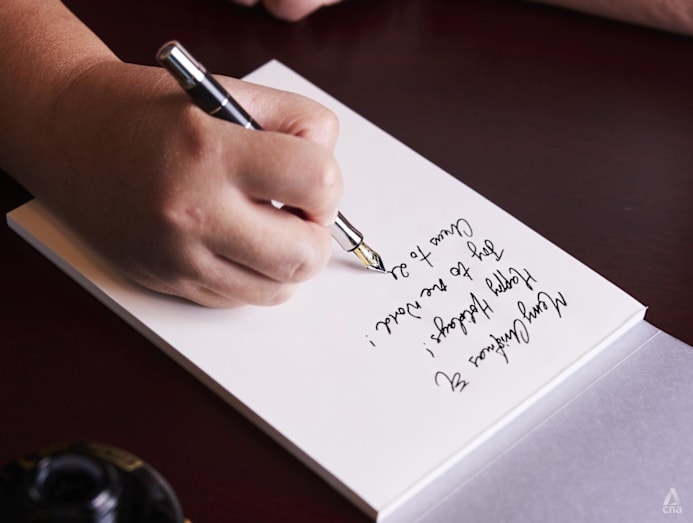 Merry Christmas &
Happy Holidays!
Joy to the World!
Cheers to 2
cna